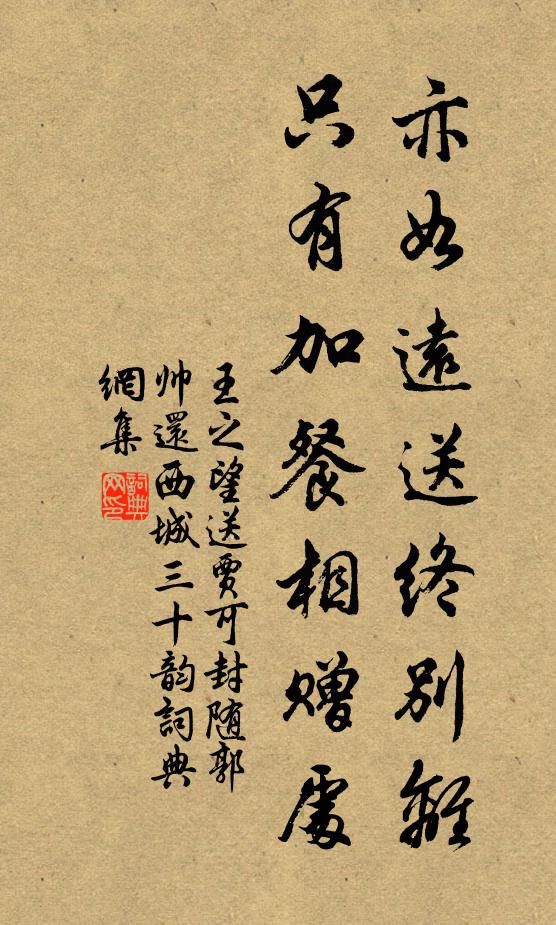 亦如遠送終別離
只有加餐相贈處
王之望送賈可封随郭
帅還西城三十韵詞典
網集
詞典
网印